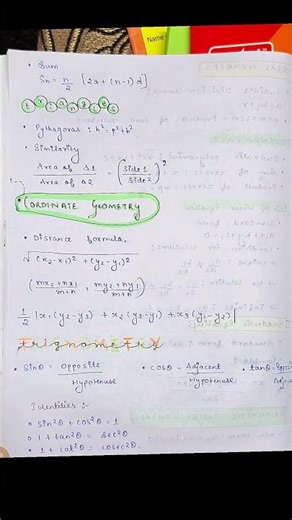 Name
• Sum
Sn = n/2 [2a + (n-1)d]
TRIANGLES
• Pythagoras : h² = p² + b²
• Similarity
Area of Δ1 / Area of Δ2 = (Side 1 / Side 2)²
CORDINATE GEOMETRY
• Distance formula,
√(x₂-x₁)² + (y₂-y₁)²
(mx₂+nx₁ / m+n , my₂+ny₁ / m+n)
1/2 |x₁(y₂-y₃) + x₂(y₃-y₁) + x₃(y₁-y₂)|
TRIGNOMETRY
• Sinθ = Opposite / Hypotenuse • cosθ - Adjacent / Hypotenuse • tanθ =
Identities :-
• sin²θ + cos²θ = 1
• 1 + tan²θ = sec²θ
• 1 + cot²θ = cosec²θ